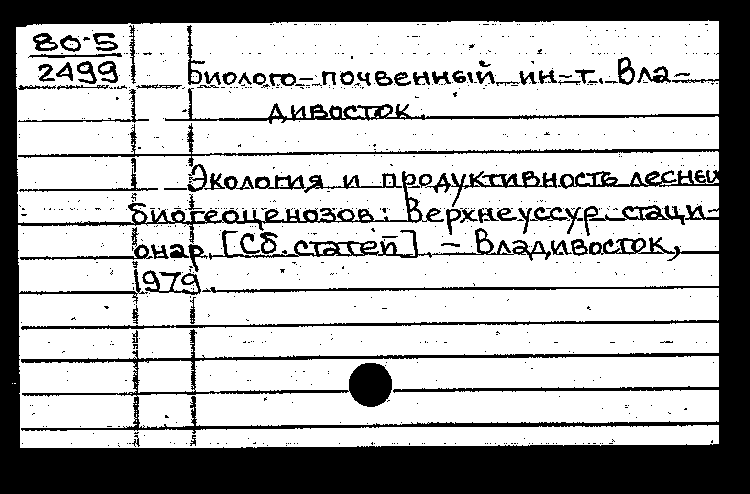 80-5
2499
Биолого-почвенный ин-т. Вла-
дивосток.
Экология и продуктивность лесных
биогеоценозов: Верхнеуссур. стаци-
онар. [Сб. статей]. - Владивосток,
1979.